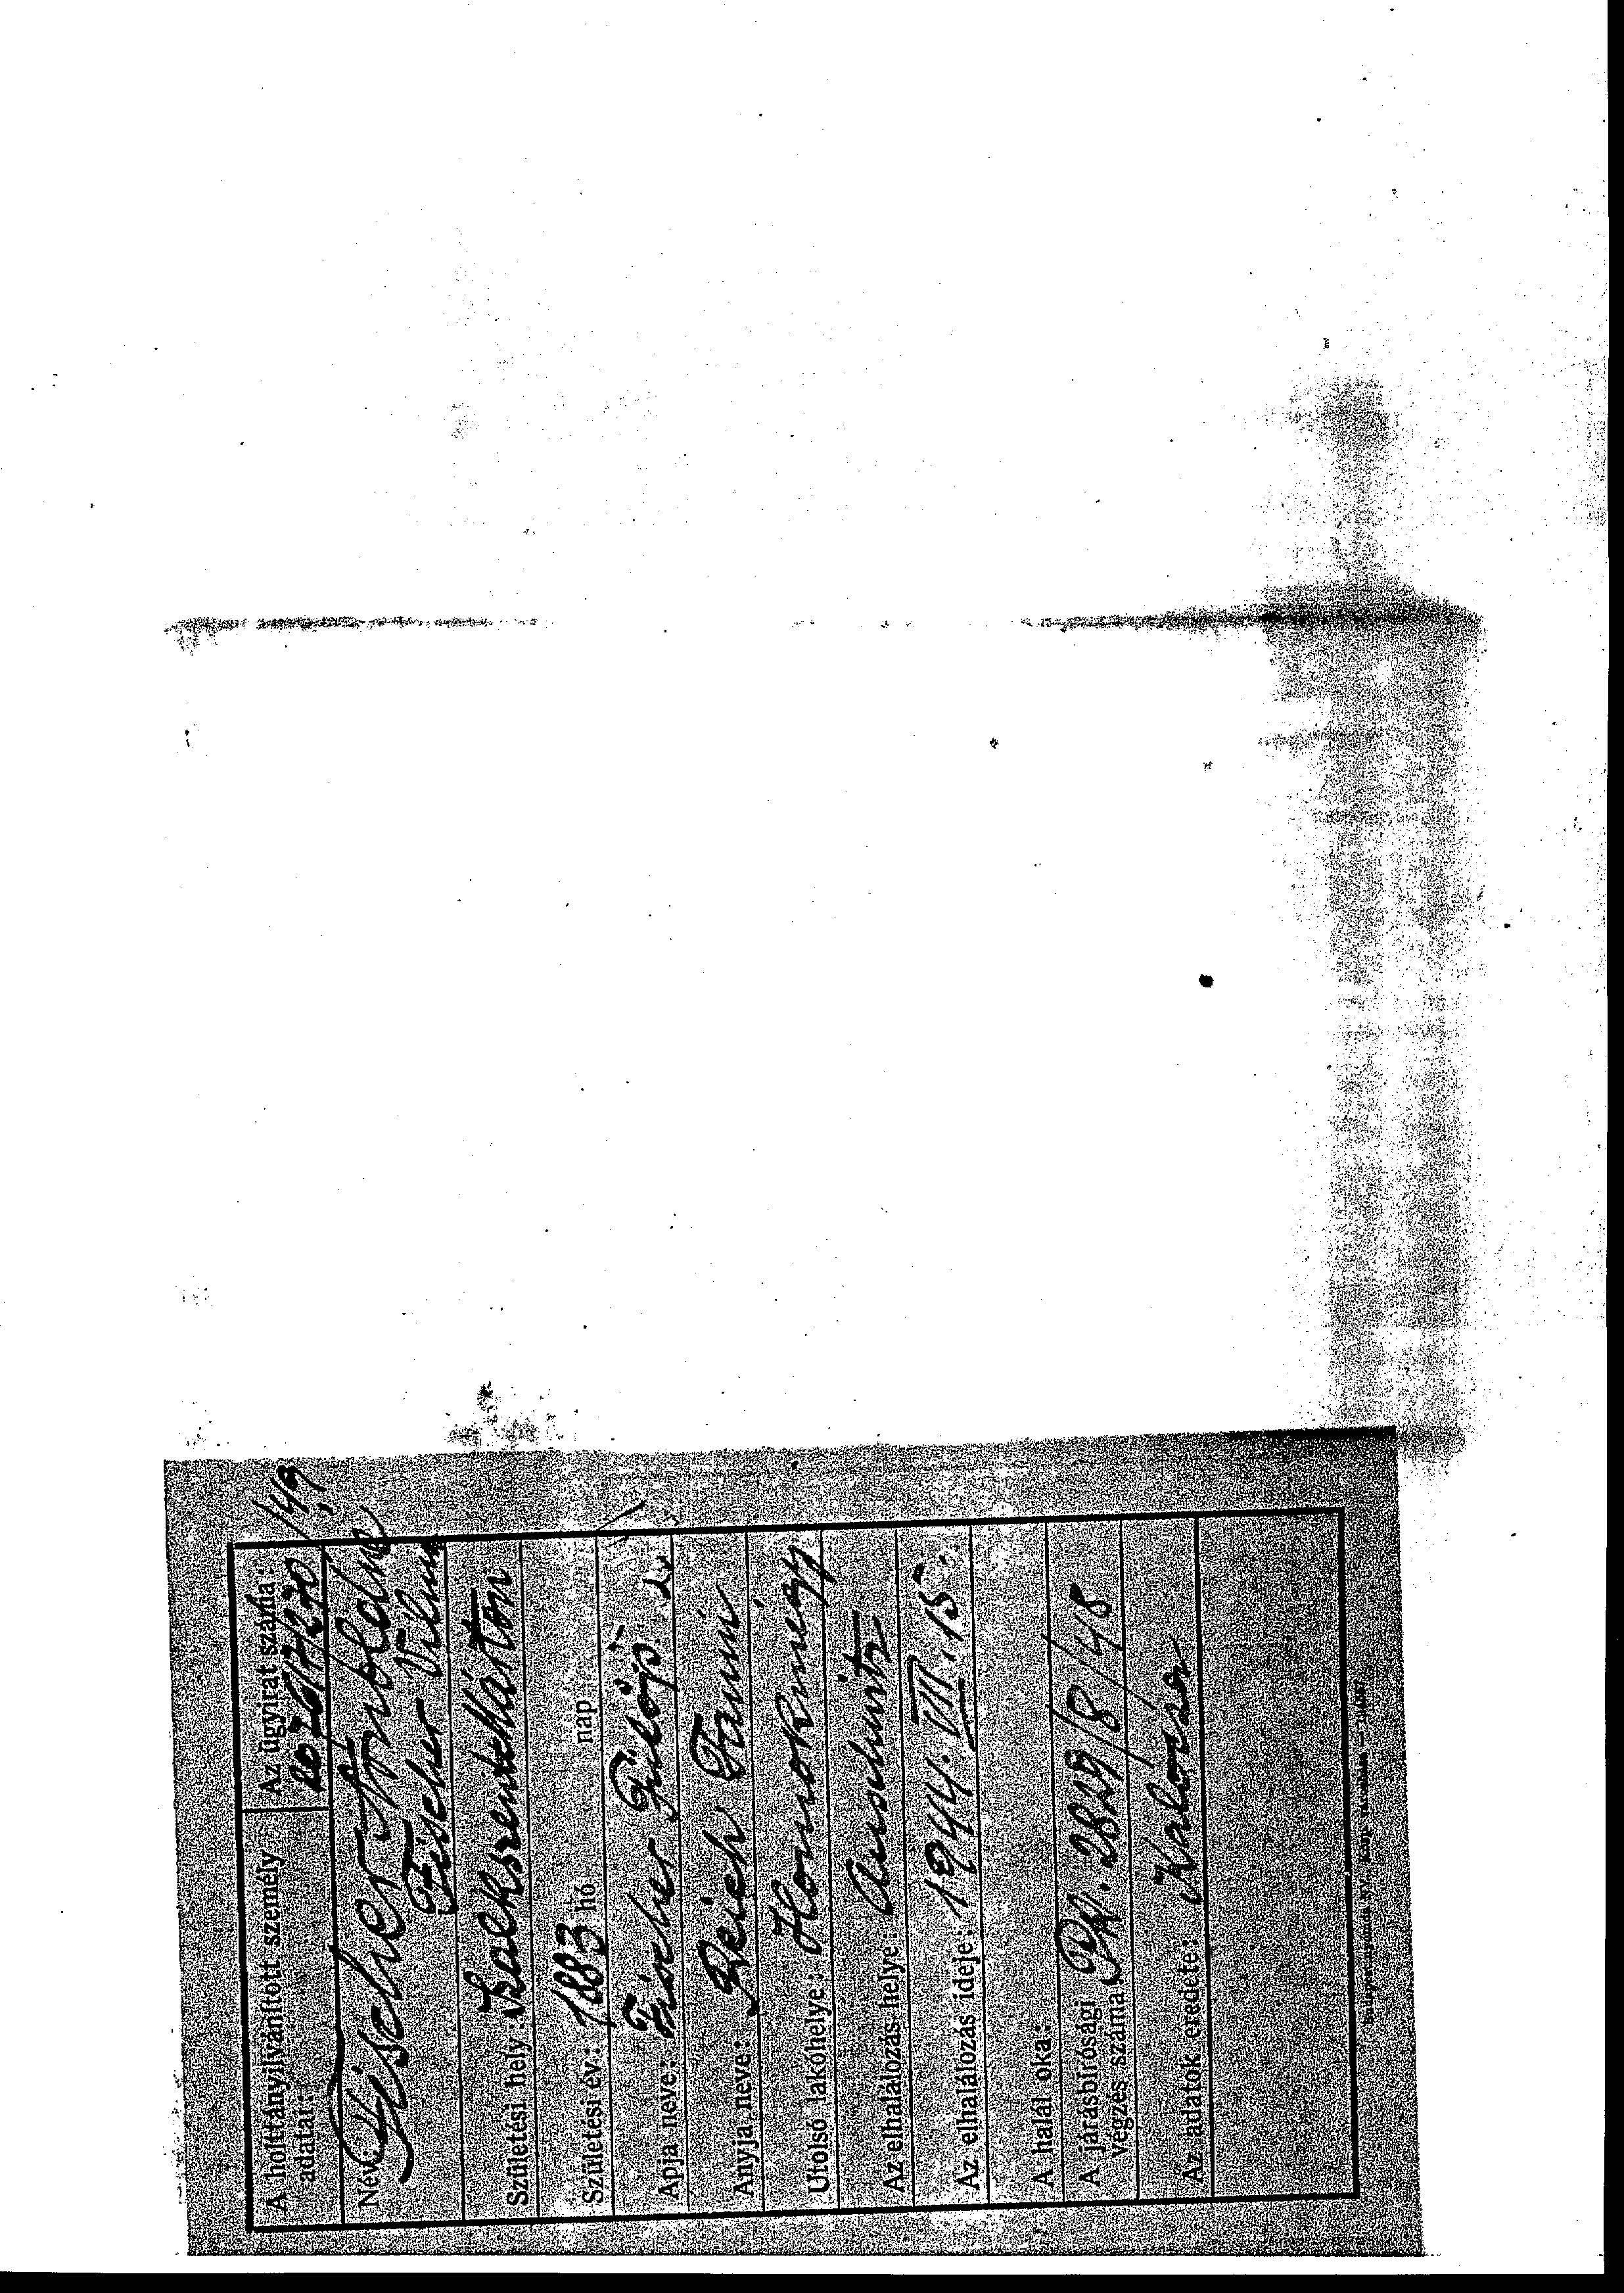 A holttányilvánított személy
adatai:
Az ügyirat száma:
/49
Név: Fischer
Fischer Vilma
Születési hely: SzalkszentMárton
Születési év: 1883 hó nap
Apja neve: Fischer Fülöp
Anyja neve: Reich Fanni
Utolsó lakóhelye: Homokmégy
Az elhalálozás helye: Auschwitz
Az elhalálozás ideje: 1944. VII. 15.
A halál oka:
A járásbírósági
végzés száma: Pk. 2829/8/48
Az adatok eredete: Kalocsa